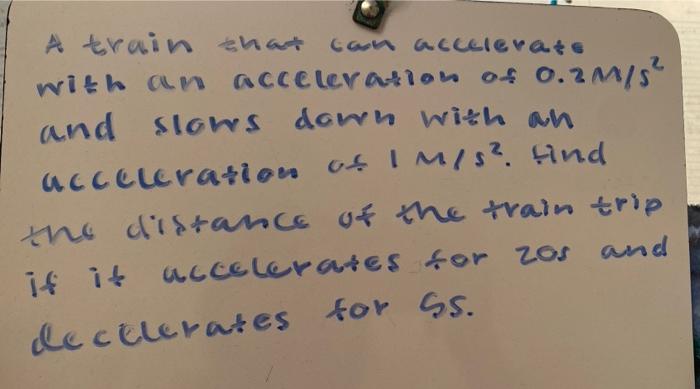 A train that can accelerate
with an acceleration of 0.2 M/S²
and slows down with an
acceleration of 1 M/S². find
the distance of the train trip
if it accelerates for 20s and
decelerates for 5s.